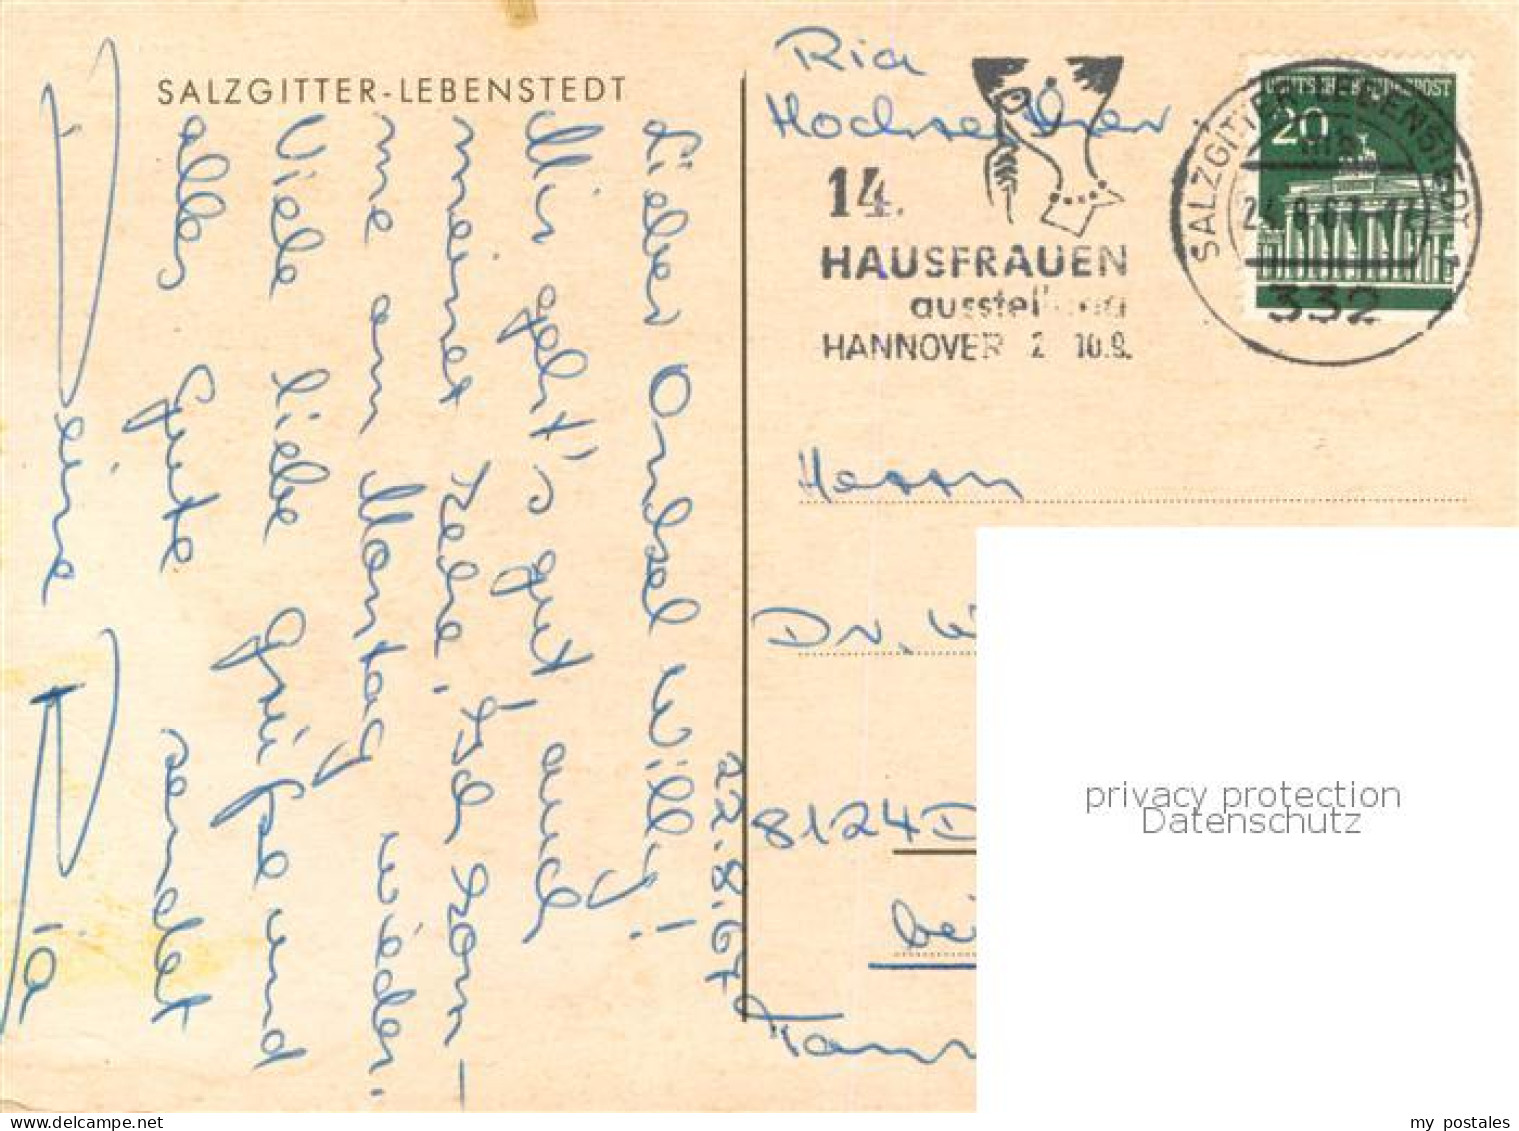 SALZGITTER-LEBENSTEDT
22.8.67
Lieber Onkel Willy!
Mir geht's gut! auch
meiner Ich kom-
me am Montag wieder.
Viele liebe Grüße und
alles Gute sendet
Deine Ria
Ria
14.
HAUSFRAUEN
ausstellung
HANNOVER 2 10.9.
DEUTSCHE BUNDESPOST
20
SALZGITTER-LEBENSTEDT
332
Herrn
Dr. W
8124 D
bei
privacy protection
Datenschutz
my postales